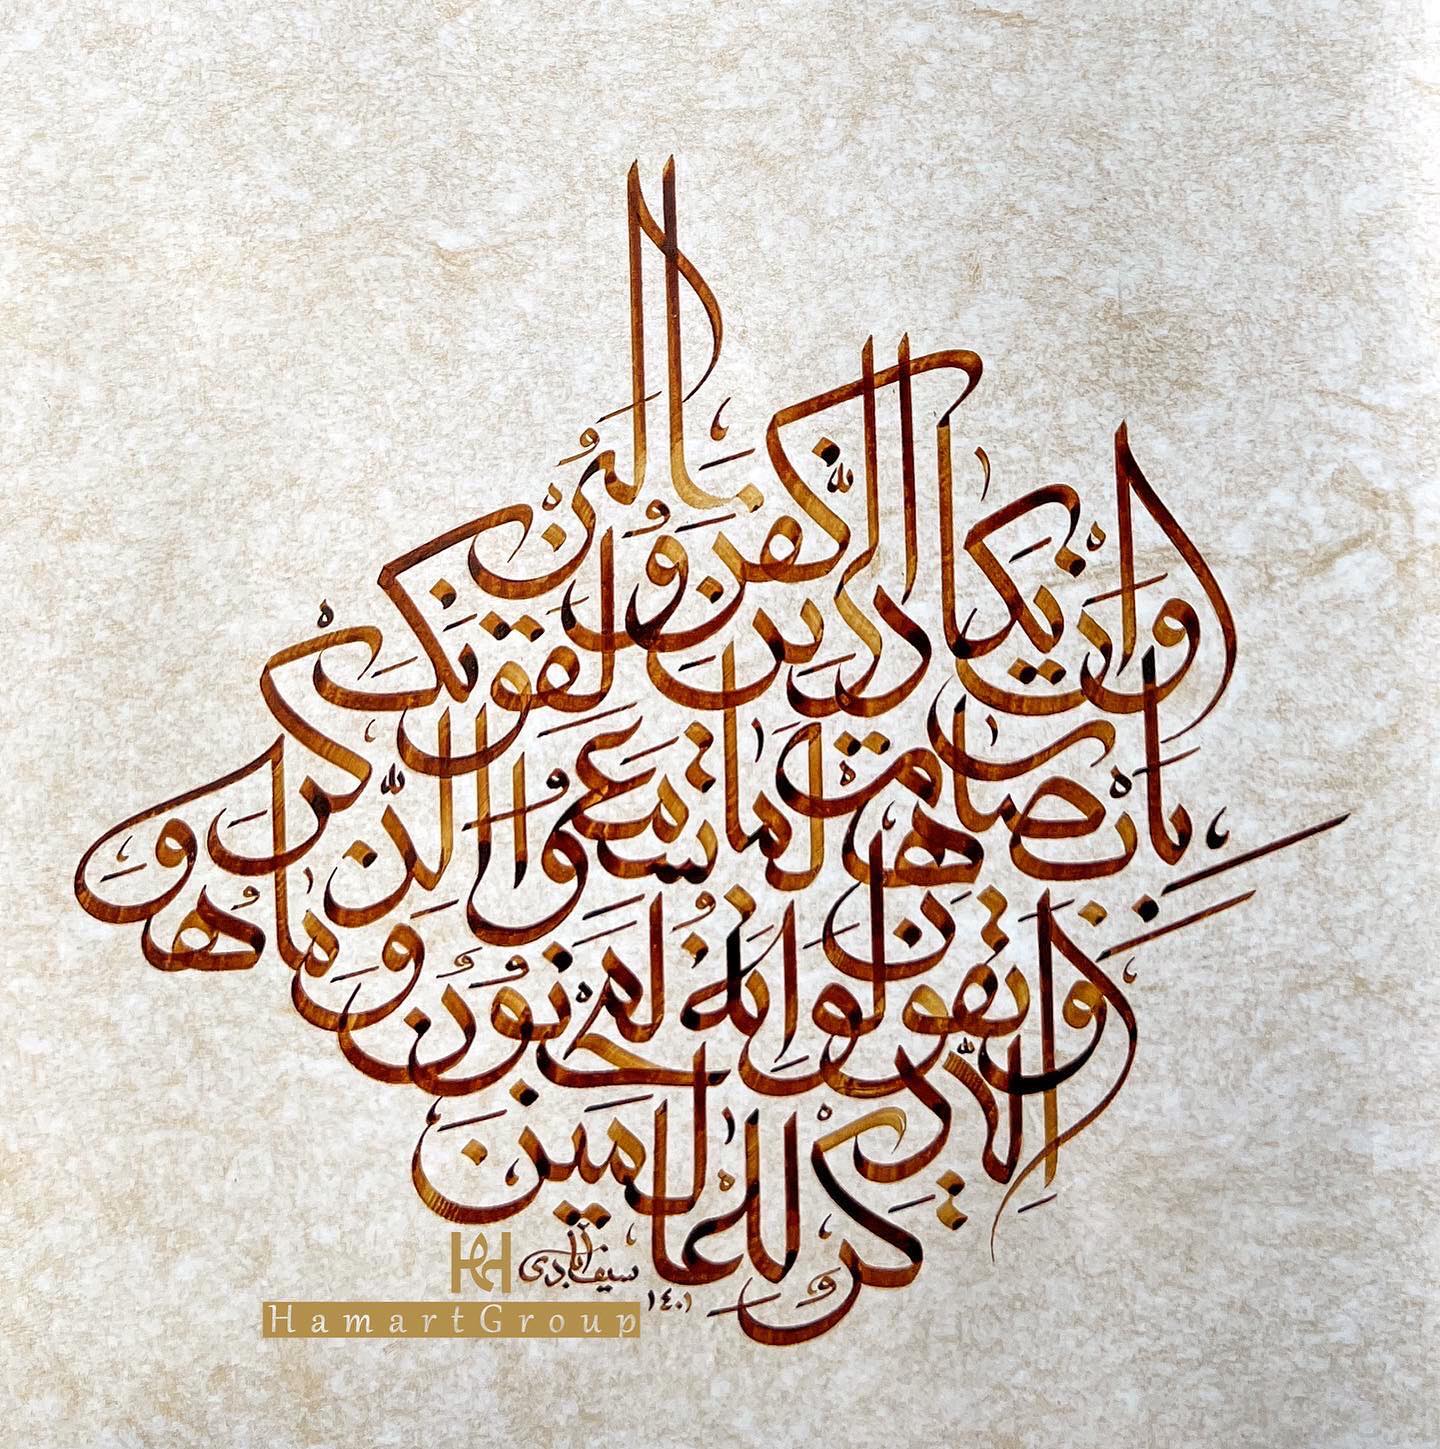 وان يكاد الذين كفروا ليزلقونك
بابصارهم لما سمعوا الذكر
ويقولون انه لمجنون وما هو
الا ذكر للعالمين
سیف آبادی
۱۴۰۱
HamartGroup